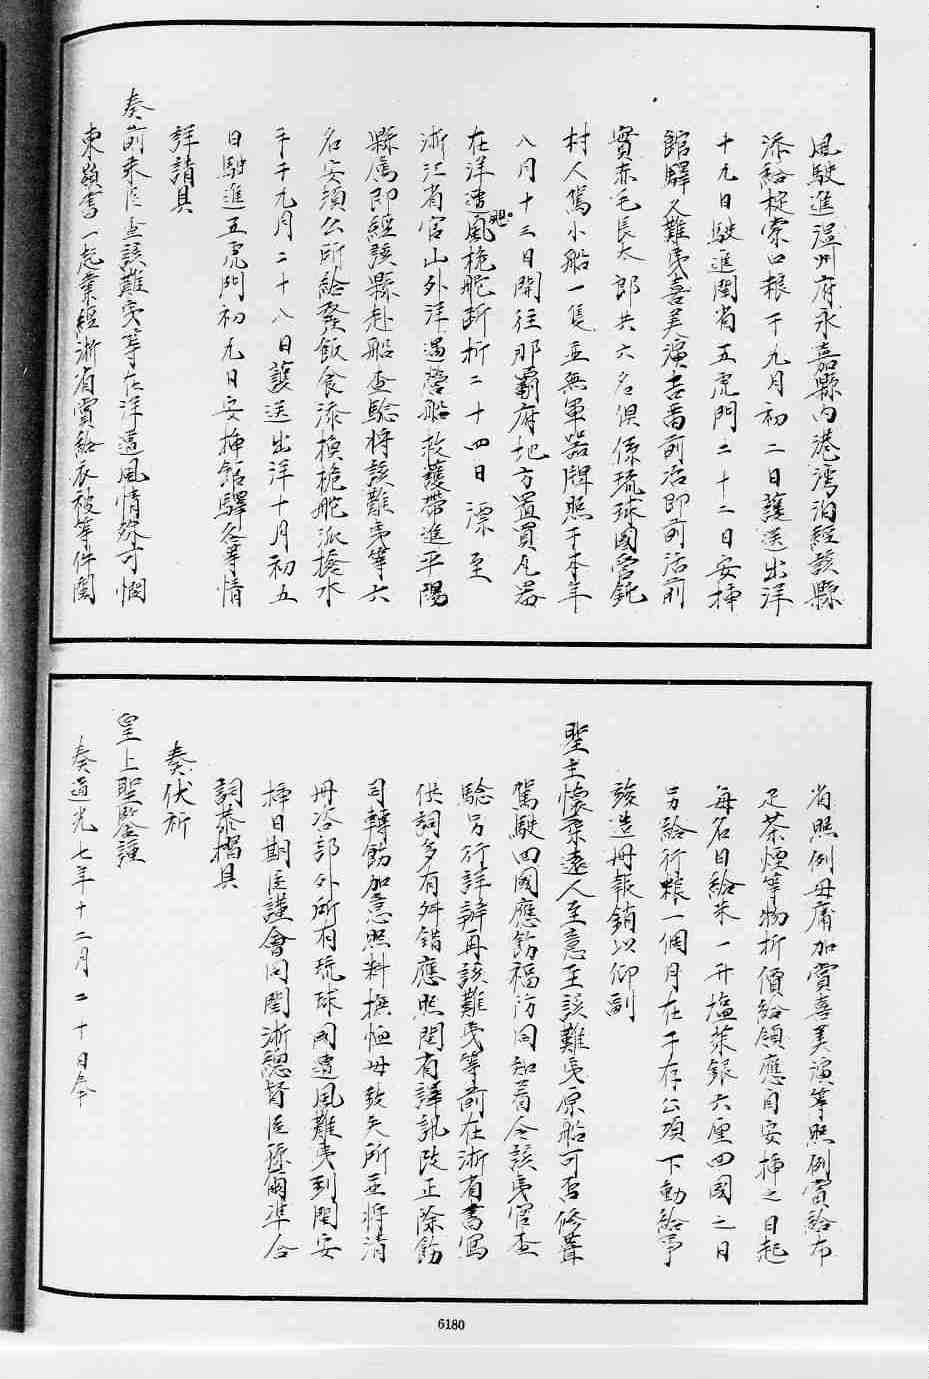 風駛進溫州府永嘉縣內港灣泊經該縣
添給椗索口粮于九月初二日護送出洋
十九日駛進閩省五虎門二十二日安揷
館驛又難夷喜美演吉番前泊即前泊前
實赤毛長太郎共六名俱係琉球國宮鈍
村人駕小船一隻並無軍器牌照于本年
八月十三日開往那霸府地方置買瓦器
在洋遭風桅舵斷折二十四日漂至
浙江省官山外洋遇營船救護帶進平陽
縣屬即經該縣赴船查騐將該難夷等六
名安頓公所給發飯食添換桅舵派撥水
手于九月二十八日護送出洋十月初五
日駛進五虎門初九日安揷館驛各等情
詳請具
奏前來臣查該難夷等在洋遭風情殊可憫
東嶺書一起業經浙省賞給衣被等件閩
省照例毋庸加賞喜美演等照例賞給布
疋茶煙等物折價給領應自安揷之日起
每名日給米一升塩菜銀六厘回國之日
另給行粮一個月在于存公項下動給事
竣造冊報銷以仰副
聖主懷柔遠人至意至該難夷原船可否修葺
駕駛回國應飭福防同知着令該夷官查
騐另行詳辦再該難夷等前在浙省書寫
供詞多有舛錯應照閩省譯訊改正除飭
司轉飭加意照料撫恤毋致失所並將清
冊咨部外所有琉球國遭風難夷到閩安
揷日期臣謹會同閩浙總督臣孫爾準合
詞恭摺具
奏伏祈
皇上聖鑒謹
奏道光七年十二月二十日奉
6180